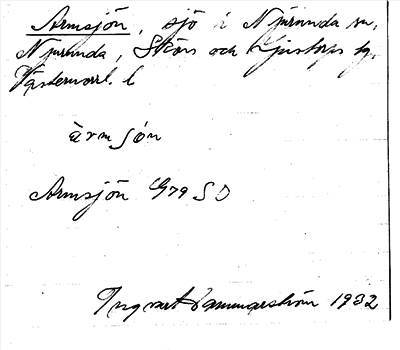 Armsjön, sjö i Njurunda sn,
Njurunda, Sköns och Ljustorps tg,
Västernorrl. l
àrmſón
Armsjön G79 SO
Ingvart Hammarström 1932